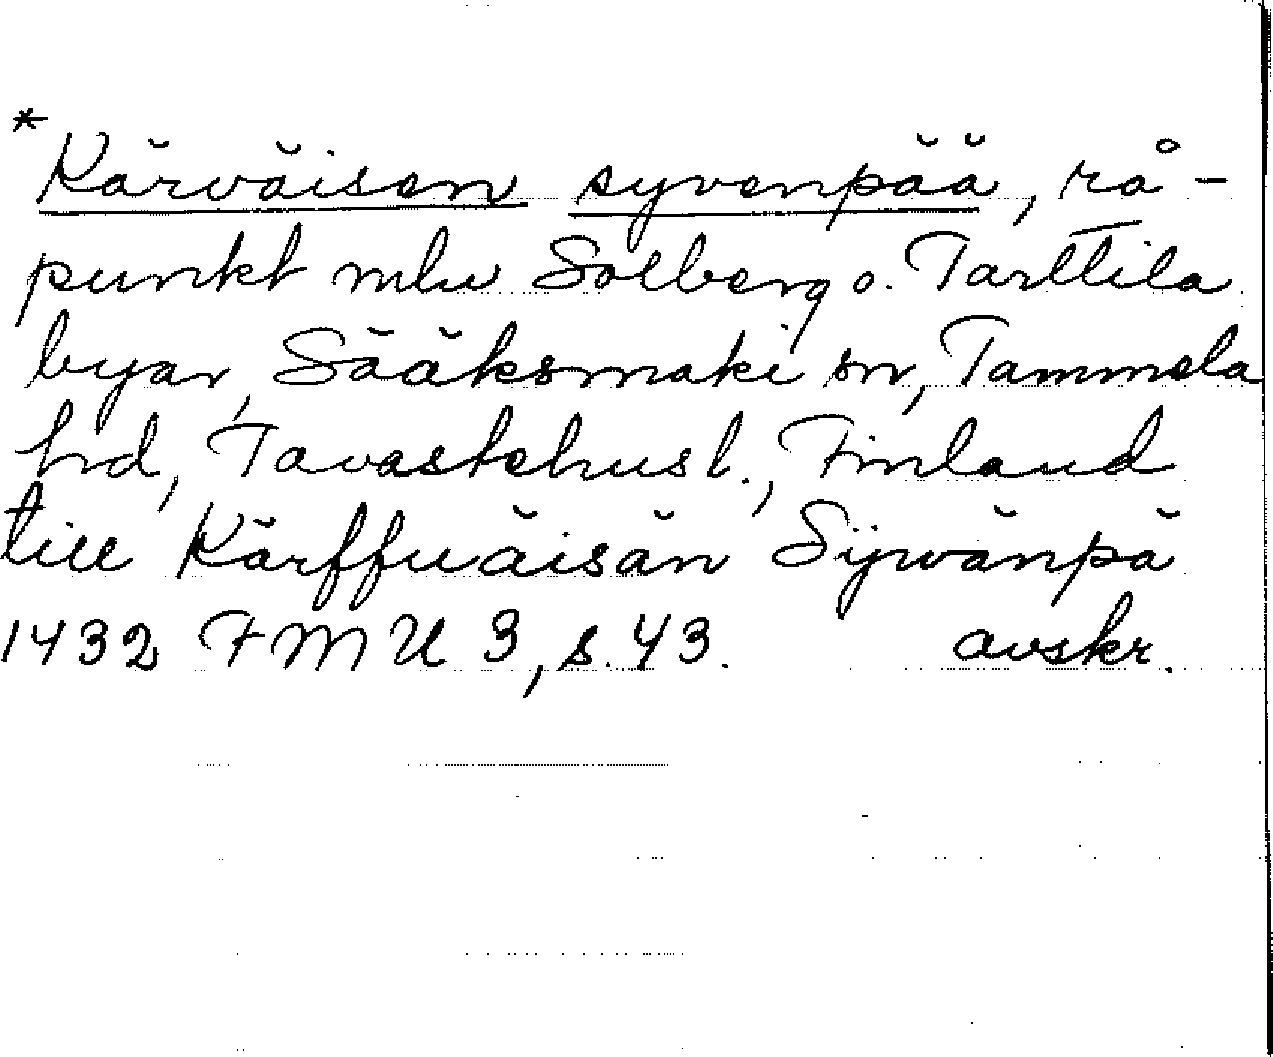 *
Kärväisen syvenpää, rå-
punkt mlw Solberg o. Tarttila
byar, Sääksmaki sn, Tammela
hd, Tavastehus l., Finland
till Kärffuäisän Sÿwänpä
1432 FMU 3, s. 43. avskr.